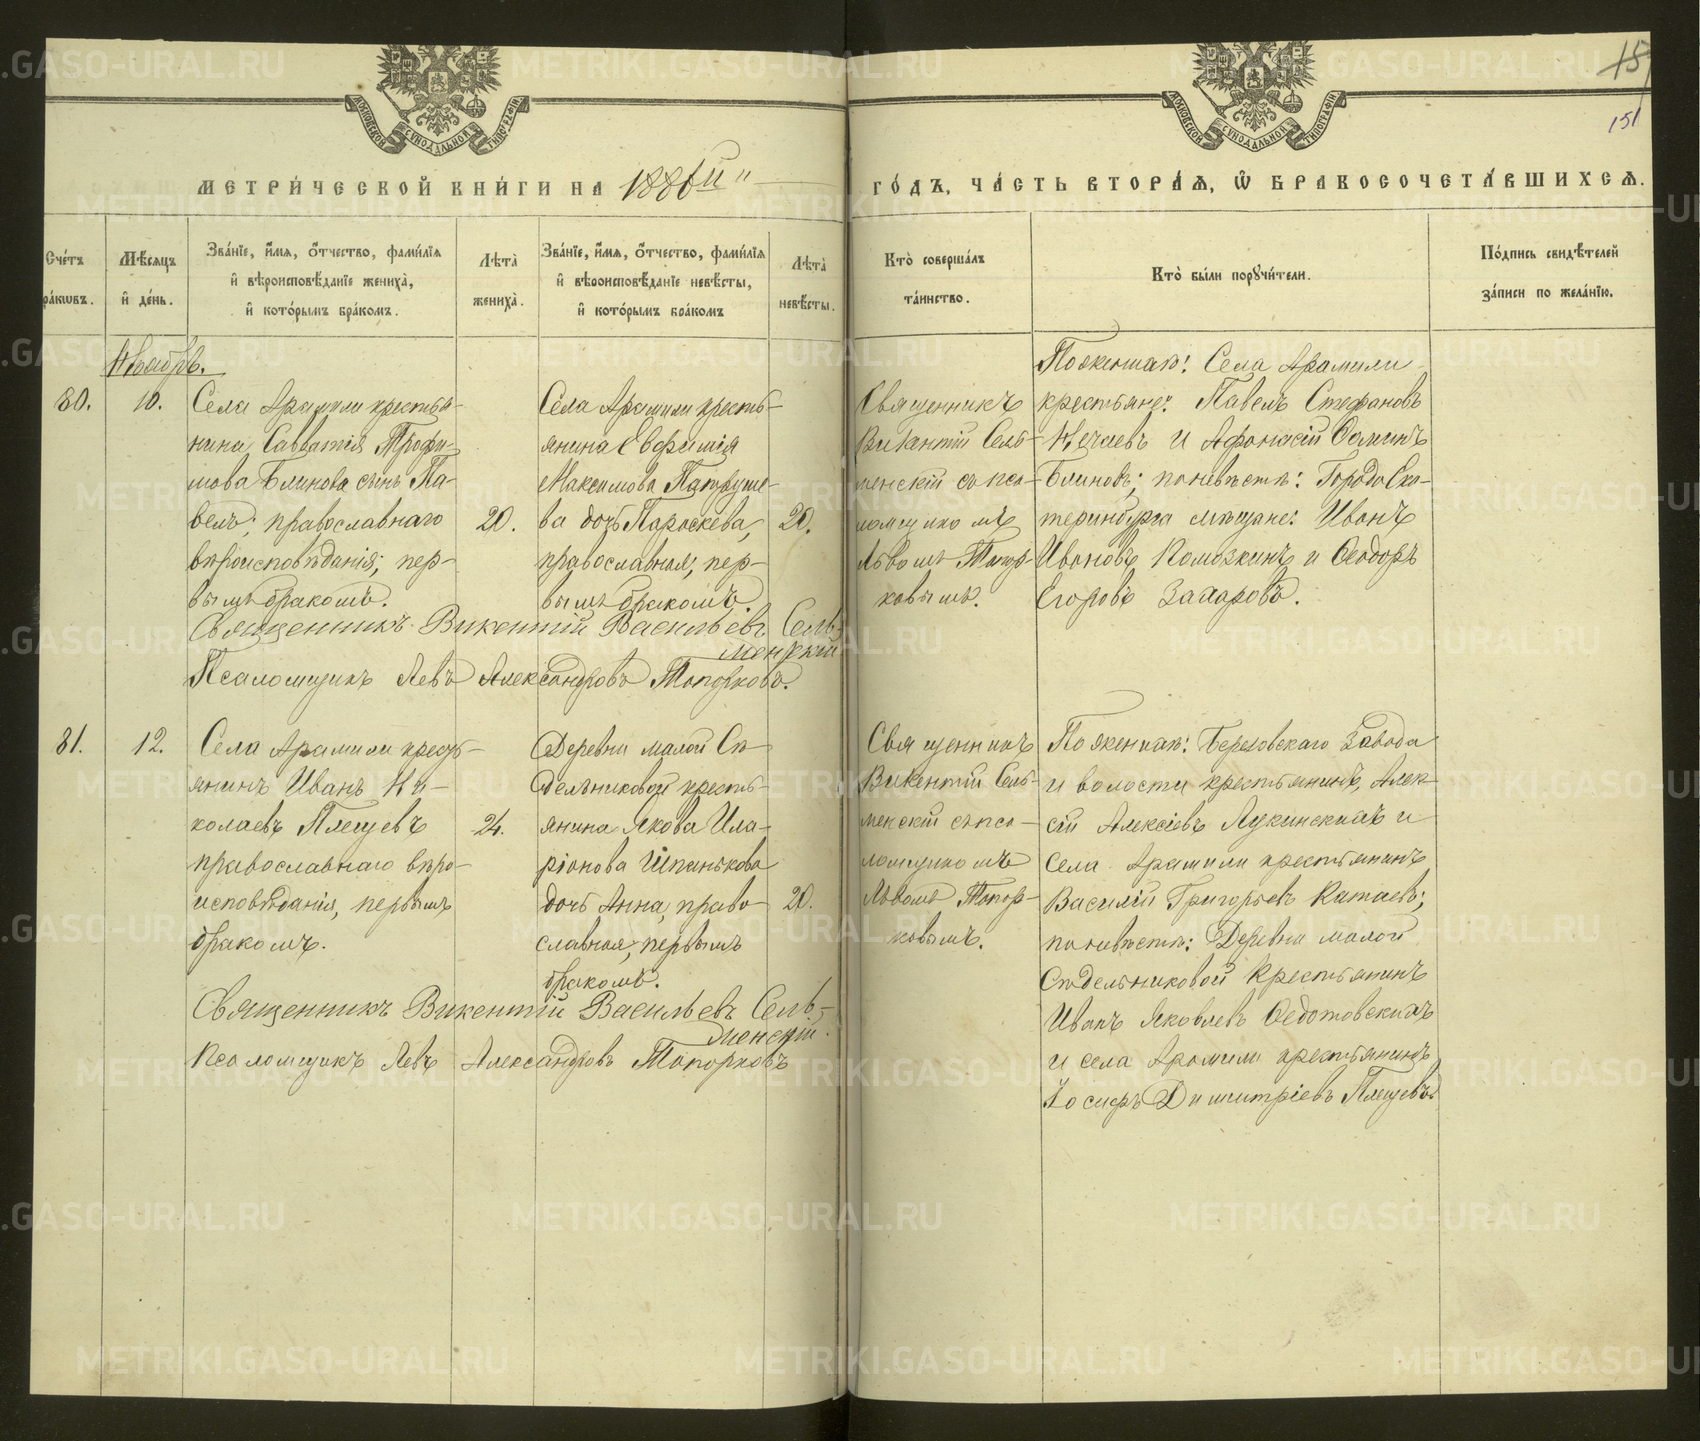 МЕТРИ́ЧЕСКОЙ КНИ́ГИ НА 1886й
ГО́ДЪ, ЧА́СТЬ ВТОРА́Я, Ѿ БРАКОСОЧЕТА́ВШИХСЯ.
15
151
МОСКОВСКОЙ СѴНОДАЛЬНОЙ ТИПОГРАФІИ
МОСКОВСКОЙ СѴНОДАЛЬНОЙ ТИПОГРАФІИ
Сче́тъ
бра́кωвъ.
Мѣ́сяцъ
и҆ де́нь.
Зва́нїе, и҆́мя, ѻ҆́тчество, фамилїя
и҆ вѣроисповѣ́данїе жениха̀,
и҆ кото́рымъ бра́комъ.
Лѣта̀
жениха̀.
Зва́нїе, и҆́мя, ѻ҆́тчество, фамилїя
и҆ вѣроисповѣ́данїе невѣ́сты,
и҆ кото́рымъ бра́комъ
Лѣта̀
невѣ́сты.
Кто̀ соверша́лъ
та́инство.
Кто̀ бы́ли порꙋчи́тели.
По́дпись свидѣ́телей
за́писи по жела́нїю.
Ноябрь.
80.
10.
Села Арамили крестья-
нина Савватія Трофи-
мова Блинова сынъ Па-
велъ; православнаго
вѣроисповѣданія; пер-
вымъ бракомъ.
20.
Села Арамили кресть-
янина Евфимія
Максимова Патруше-
ва дочь Параскева,
православная; пер-
вымъ бракомъ.
20.
Священникъ
Викентій Сель-
менскій съ пса-
ломщикомъ
Львомъ Топор-
ковымъ.
По женихѣ: Села Арамили
крестьяне: Павелъ Стефановъ
Нечаевъ и Афонасій Фоминъ
Блиновъ; по невѣстѣ: Города Ека-
теринбурга мѣщане: Иванъ
Ивановъ Помозкинъ и Ѳеодоръ
Егоровъ Захаровъ.
Священникъ Викентій Васильевъ Сель-
менскій
Псаломщикъ Левъ Александровъ Топорковъ.
81.
12.
Села Арамили кресть-
янинъ Иванъ Ни-
колаевъ Плещевъ
православнаго вѣро-
исповѣданія, первымъ
бракомъ.
24.
Деревни малой Сѣ-
дельниковой кресть-
янина Якова Ила-
ріонова Шпанькова
дочь Анна, право-
славная, первымъ
бракомъ.
20.
Священникъ
Викентій Сель-
менскій съ пса-
ломщикомъ
Львомъ Топор-
ковымъ.
По женихѣ: Березовскаго Завода
и волости крестьянинъ, Алек-
сій Алексіевъ Лукинскихъ и
села Арамили крестьянинъ
Василій Григорьевъ Катаевъ;
по невѣстѣ: Деревни малой
Сѣдельниковой Крестьянинъ
Иванъ Яковлевъ Ѳедотовскихъ
и села Арамили крестьянинъ
Іосифъ Димитріевъ Плещевъ
Священникъ Викентій Васильевъ Сель-
менскій.
Псаломщикъ Левъ Александровъ Топорковъ
METRIKI.GASO-URAL.RU